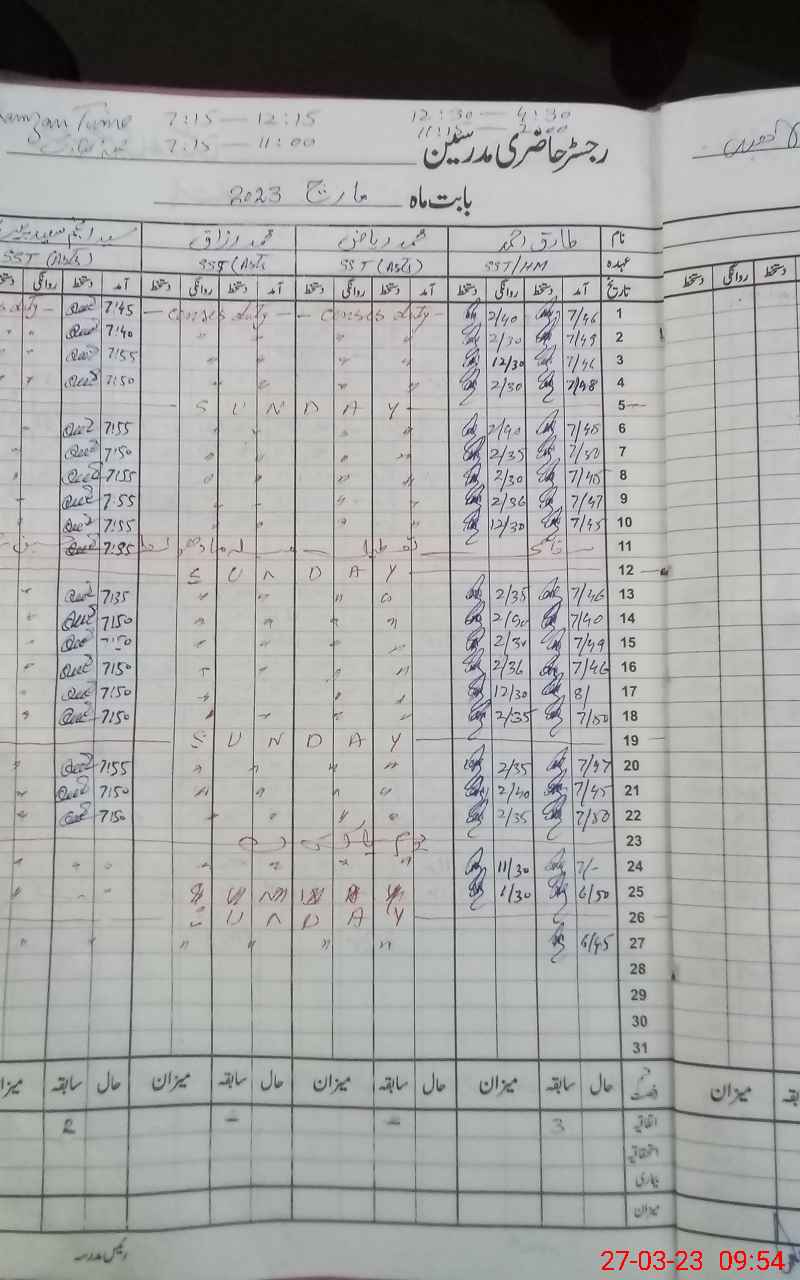 Ramzan Time 7:15 — 12:15 12:30 — 4:30
7:15 — 11:00
رجسٹر حاضری مدرسین
بابت ماہ مارچ 2023
نام طارق احمد محمد ریاض محمد رزاق
عہدہ SST/HM SST (Arts) SST (Arts SST (Arts)
تاریخ آمد دستخط روانگی دستخط آمد دستخط روانگی دستخط آمد دستخط روانگی دستخط آمد دستخط روانگی
1 7/46 2/40 — censes duty — — censes duty — 7:45 duty —
2 7/49 2/30 " " " 7:40 " "
3 7/46 12/30 " " " " 7:55 " "
4 7/48 2/30 " " " " 7:50 " "
5 — S U N D A Y —
6 7/45 2/40 " " " " 7:55 "
7 7/50 2/35 " " " " 7:50 "
8 7/45 2/30 " " " " 7:55 "
9 7/47 2/36 " " " " 7:55 "
10 7/45 12/30 " " " " 7:55 "
11 تعطیل 7:35
12 — S U N D A Y
13 7/46 2/35 " " " " 7:35 "
14 7/40 2/40 " " " " 7:50 "
15 7/49 2/30 " " " " 7:50 "
16 7/46 2/36 " " " " 7:50 "
17 8/ 12/30 " " " 7:50 "
18 7/50 2/35 " " " " 7:50 "
19 S U N D A Y
20 7/47 2/35 " " " " 7:55 "
21 7/45 2/40 " " " " 7:50 "
22 7/50 2/35 " " " " 7:50 "
23 یوم پاکستان
24 7/- 11/30 " " " " " " "
25 6/50 1/30 S U N D A Y " " "
26 S U N D A Y
27 6/45 " " " " " "
28
29
30
31
حال سابقہ میزان حال سابقہ میزان حال سابقہ میزان حال سابقہ میزان
اتفاقیہ 3 – – 2
استحقاقیہ
بیماری
میزان
رئیس مدرسہ
دستخط روانگی دستخط
میزان سابقہ
27-03-23 09:54